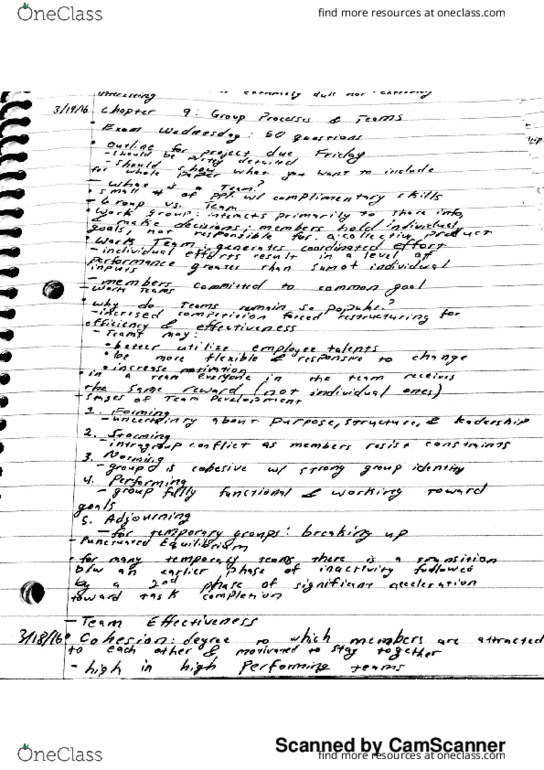 OneClass
find more resources at oneclass.com
extremely dull nor
3/14/16 Chapter 9: Group Processes & Teams
• Exam Wednesday: 50 questions
• Outline for project due Friday
- should be pretty detailed
- should show what you want to include
for whole paper
- What is a Team?
• small # of ppl w/ complimentary skills
- Group vs. Team
• Work group: interacts primarily to share info
& make decisions; members hold individual
goals, not responsible for a collective product
• Work Team: generates coordinated effort
- individual efforts result in a level of
performance greater than sum of individual
inputs
- members committed to common goal
Work Teams
• why do Teams remain so popular?
- increased competition forced restructuring for
efficiency & effectiveness
- Teams may:
• better utilize employee talents
• be more flexible & responsive to change
• increase motivation
• in a team everyone in the team receives
the same reward (not individual ones)
- Stages of Team Development
1. Forming
- uncertainty about purpose, structure, & leadership
2. Storming
- intragroup conflict as members resist constraints
3. Norming
- group is cohesive w/ strong group identity
4. Performing
- group fully functional & working toward
goals
5. Adjourning
- for temporary groups: breaking up
- Punctuated Equilibrium
• for many temporary teams there is a transition
b/w an earlier phase of inactivity followed
by a 2nd phase of significant acceleration
toward task completion
- Team Effectiveness
3/18/16 • Cohesion: degree to which members are attracted
to each other & motivated to stay together
- high in high performing teams
Scanned by CamScanner
OneClass
find more resources at oneclass.com